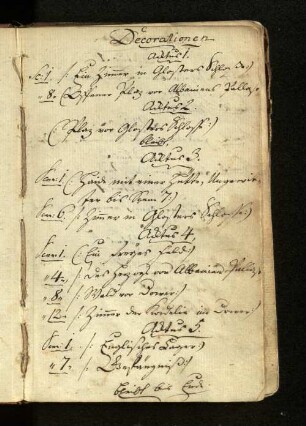 Decorationen
Actus 1.
Sc: 1. /: Ein Zimmer in Glosters Schloße :/
" 8. (: Schener Platz vor Albaniens Pallast
Actus 2.
(: Platz vor Glosters Schloße :)
bleibt
Actus 3.
Scen: 1. (: Haide mit einer Hütte, Ungewit=
ter bis Scen 7 :)
Scen 6. /: Zimmer in Glosters Schloße :)
Actus 4.
Scen: 1. (: Ein freyes Feld :)
" 4 " /: des Herzogs von Albanien Pallast
" 8 " /: Wald vor Dover :)
" 12 " /: Zimmer der Kordelia in Dover :)
Actus 5.
Scen: 1. /: Englisches Lager :)
" 7. /: Gefängniß :)
bleibt bis Ende